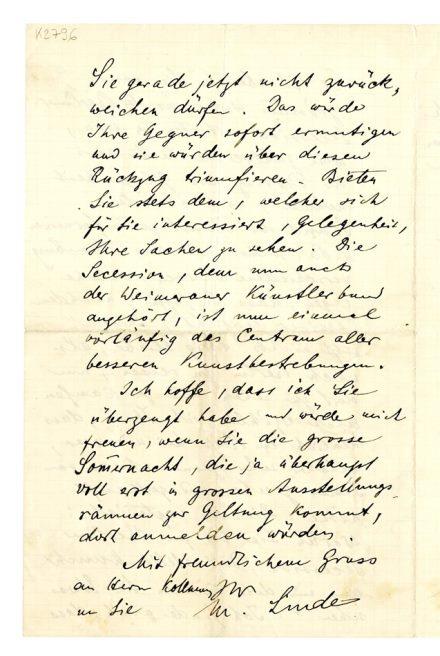 K2796
Sie gerade jetzt nicht zurück,
weichen dürfen. Das würde
Ihre Gegner sofort ermutigen
und sie würden über diesen
Rückzug triumfieren. Bieten
Sie stets dem, welcher sich
für Sie interessiert, Gelegenheit,
Ihre Sachen zu sehen. Die
Secession, dem nun auch
der Weimeraner Künstlerbund
angehört, ist nun einmal
vorläufig das Centrum aller
besseren Kunstbestrebungen.
Ich hoffe, dass ich Sie
überzeugt habe und würde mich
freuen, wenn Sie die grosse
Sommernacht, die ja überhaupt
voll erst in grossen Ausstellungs
räumen zur Geltung kommt,
dort anmelden würden.
Mit freundlichem Gruss
an Herrn Kollmann Ihr
u Sie M. Linde